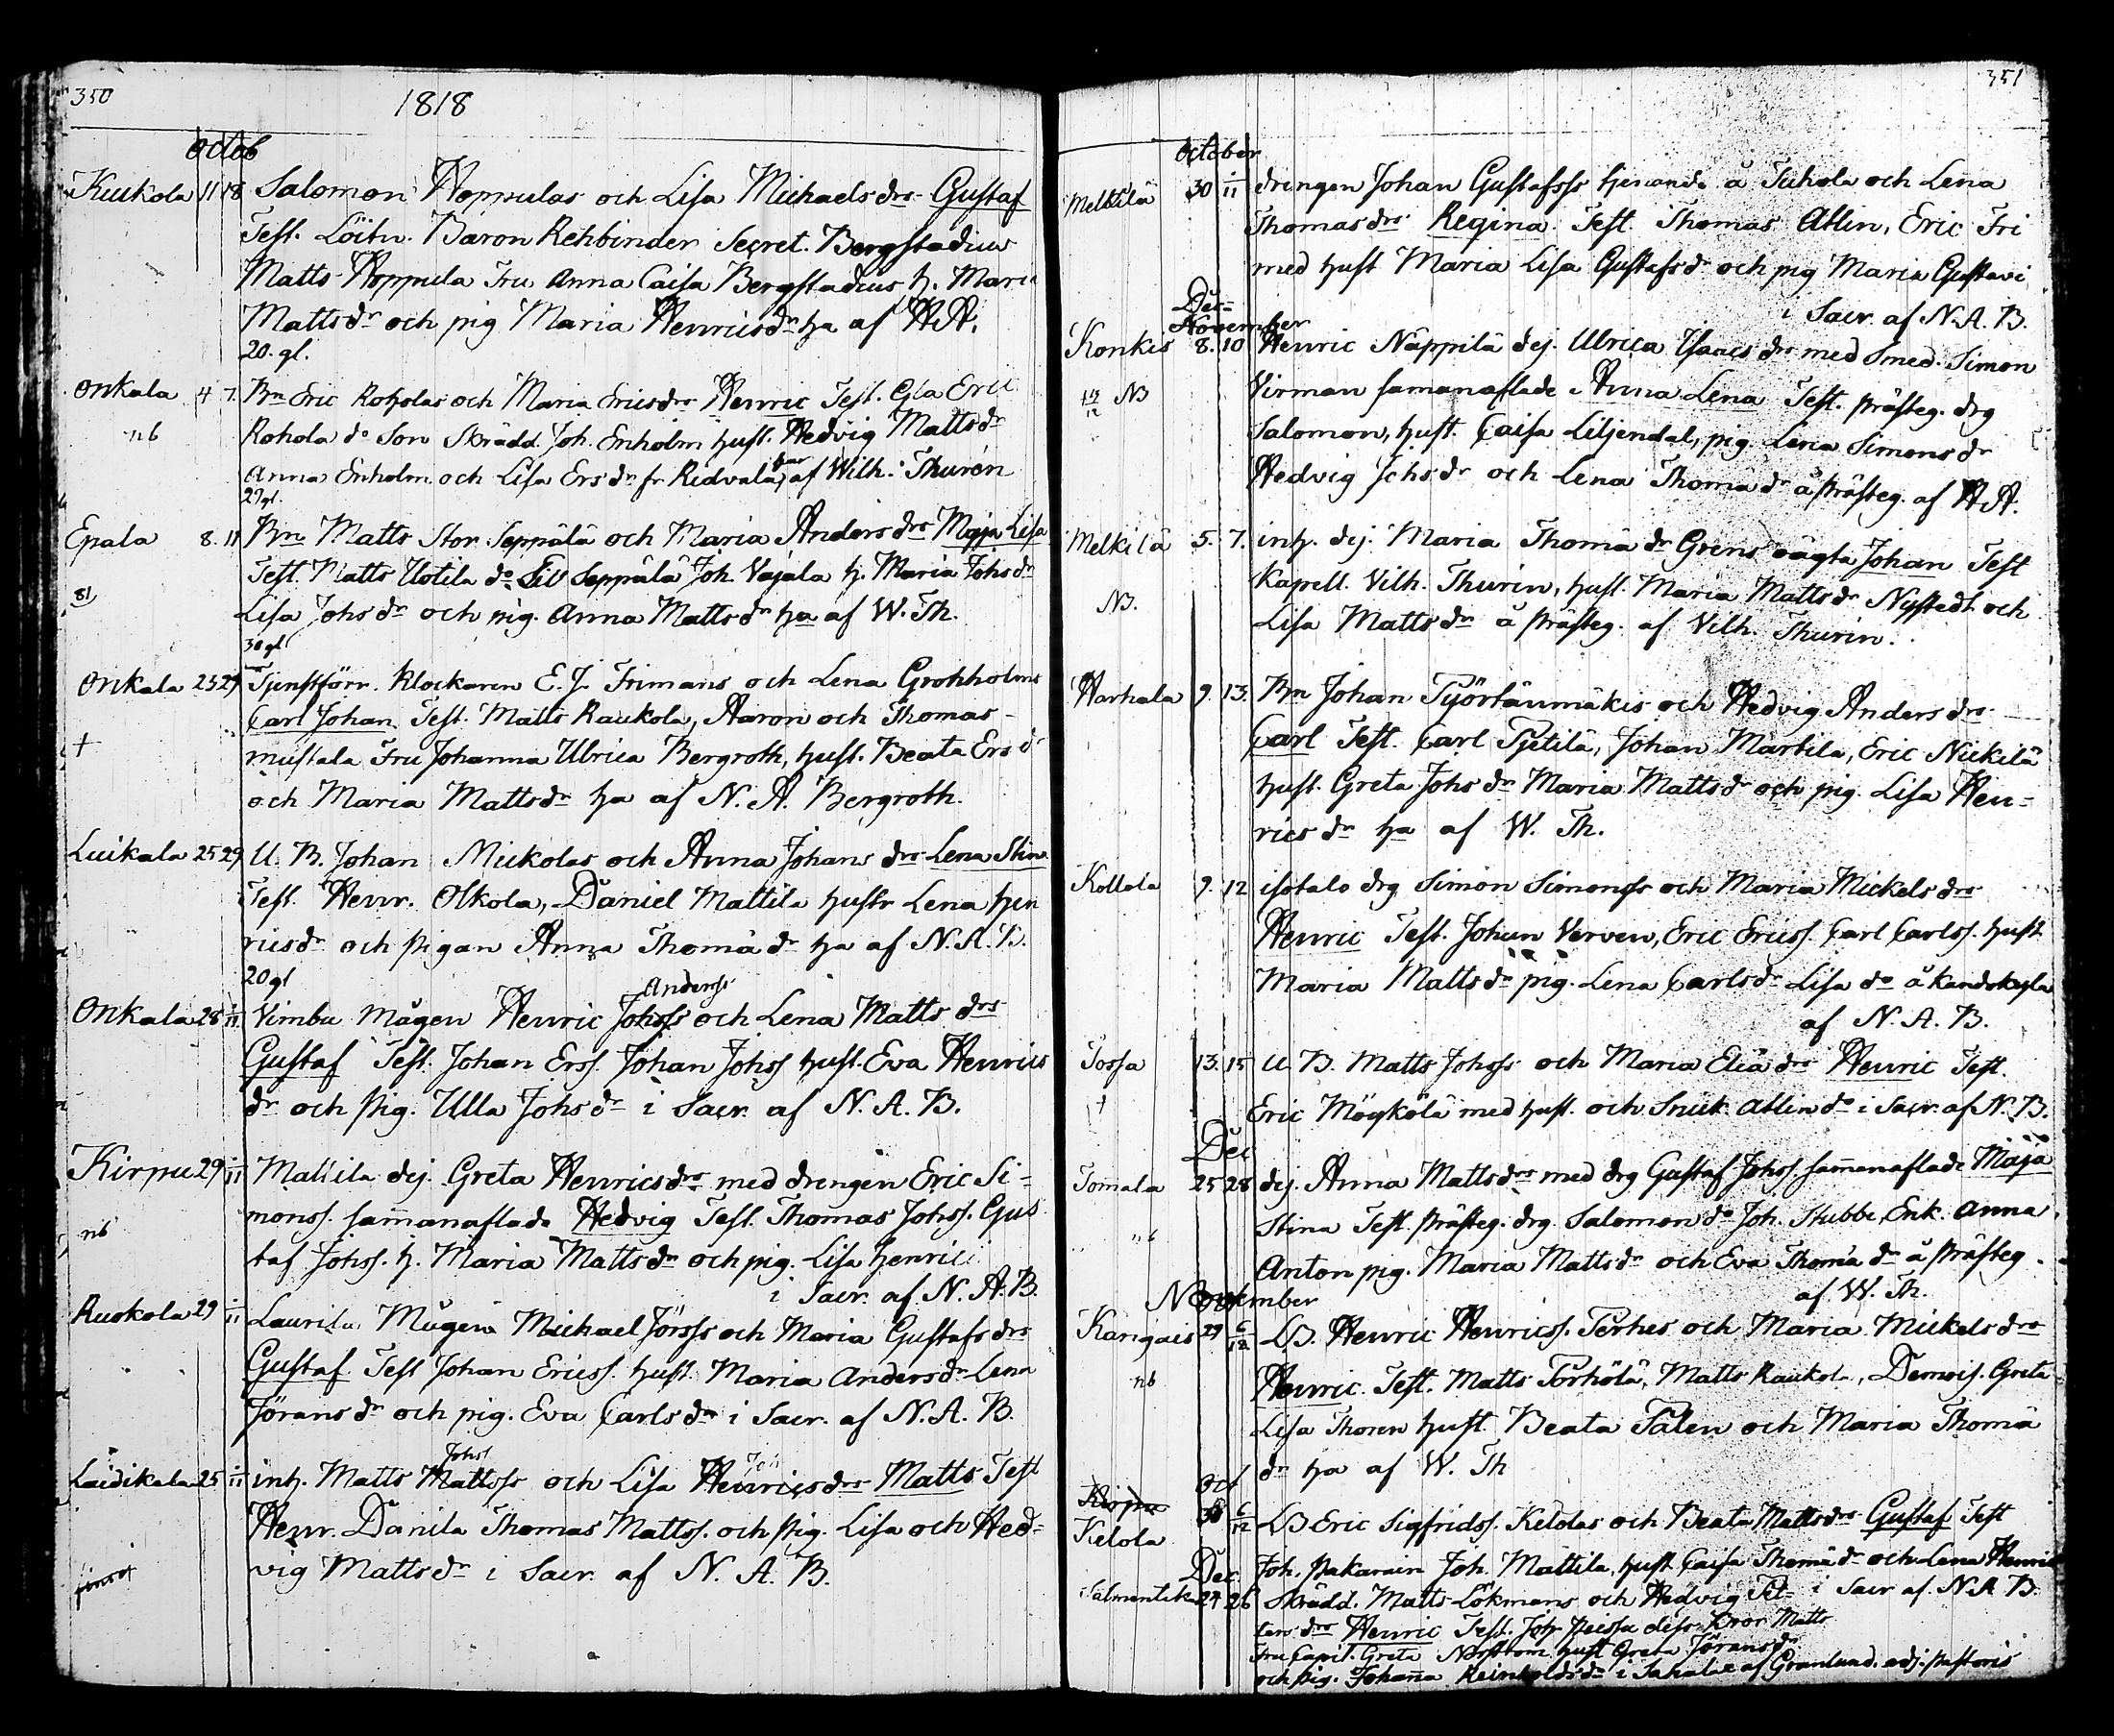 350
1818
Octob
Kuikola 11 18 Salomon Hoppulas och Lisa Michaels drs Gustaf
Test. Löitn. Baron Rehbinder Secret. Bergstadius
Matts Hoppula Fru Anna Caisa Bergstadius h. Maria
Matts dr och pig Maria Henrics dr ha af H.A.
20. gl.
Onkala 4 7. Bn Eric Roholas och Maria Erics drs Henric Test. Gla Eric
nb Rohola do Son Skrädd. Joh. Enholm hust. Hedvig Matts dr
Anna Enholm och Lisa Ers dr fr Ridvala, af Wilh. Thurén
27 gl.
Epala 8. 11 Bn Matts Stor Seppälä och Maria Anders drs Maja Lisa
Test. Matts Uotila do Lill Seppälä Joh. Vajala h. Maria Johs dr
81 Lisa Johs dr och pig. Anna Matts dr ha af W. Th.
30 gl
Onkala 23 29 Tjenstförr. Klockaren E. J. Frimans och Lena Grohholms
Carl Johan Test. Matts Raukola, Aaron och Thomas
+ mustala Fru Johanna Ulrica Bergroth, hust. Beata Ers d
och Maria Matts dr ha af N. A. Bergroth.
Luikala 25 29 U. B. Johan Mickolas och Anna Johans drs Lena Stina
Test. Henr. Olkola, Daniel Mattila hustr Lena Hen
rics dr och Pigan Anna Thomä dr ha af N. A. B.
20 gl
Anderss
Onkala 28 1/11 Vimbu Mågen Henric Johss och Lena Matts drs
Gustaf Test. Johan Erss. Johan Johss hust. Eva Henrics
dr och Pig. Ulla Johs dr i Sacr. af N. A. B.
Kirpu 29 1/11 Mattila dej. Greta Henrics drs med drengen Eric Si=
nb monss. sammanaflade Hedvig Test. Thomas Johss. Gus
taf Johss. h. Maria Matts dr och pig. Lisa Henrici
i Sacr. af N. A. B.
Ruokola 29 1/11 Laurila Mågen Michael Jörss och Maria Gustafs drs
Gustaf Test Johan Ericss. hust. Maria Anders dr Lena
Jörans dr och pig. Eva Carls dr i Sacr. af N. A. B.
Johss
Laidikala 25 1/11 inh. Matts Mattss och Lisa Henrics drs Matts Test
Henr. Danila Thomas Mattss. och Pig. Lisa och Hed=
vig Matts dr i Sacr. af N. A. B.
351
October
Melkilä 30 1/11 drengen Johan Gustafss tjenande å Tuhola och Lena
Thomas drs Regina Test. Thomas Ahlin, Eric Fri
med hust Maria Lisa Gustafs dr och pig Maria Gustavi
i Sacr. af N. A. B.
Dec=
November
Konkis 8. 10 Henric Näppilä dej. Ulrica Isaacs drs med Smed. Simon
NB Virman samanaflade Anna Lena Test. Prästeg. drg
Salomon, hust. Caisa Liljendal, pig. Lena Simons dr
Hedvig Johs dr och Lena Thomä dr å Prästeg. af H.A.
Melkilä 5. 7. inh. dej. Maria Thomä dr Grens oägta Johan Test
NB. Kapell. Vilh. Thurin, hust. Maria Matts dr Nystedt och
Lisa Matts dr å Prästeg. af Vilh. Thurin.
Harhala 9. 13. Bn Johan Työrtänmäkis och Hedvig Anders drs
Carl Test. Carl Pjetilä, Johan Martila, Eric Nickilä
hust. Greta Johs dr Maria Matts dr och pig. Lisa Hen=
rics dr ha af W. Th.
Kollola 9. 12 isotalo drg Simon Simonss och Maria Mickels drs
Henric Test. Johan Verven, Eric Ericss. Carl Carlss. hust
Maria Matts dr pig. Lena Carls dr Lisa do å
af N. A. B.
Tossa 13. 15 U. B. Matts Johss och Maria Eliä drs Henric Test.
+ Eric Möykölä med hust. och Snick. Ahlin do i Sacr. af N. B.
Dec
Tomala 25 28 dej. Anna Matts drs med drg Gustaf Johss. sammanaflade Maja
nb Stina Test. Prästeg. drg. Salomon do Joh. Stubbe, Enk. Anna
Anton pig. Maria Matts dr och Eva Thomä dr å Prästeg
af W. Th.
November
Kangais 29 6/12 LB. Henric Henricss. Terhes och Maria Mickels drs
nb Henric. Test. Matts Torhölä, Matts Raukola, Demois. Greta
Lisa Thoren hust. Beata Palen och Maria Thomä
dr ha af W. Th
Oct
Kirpu
Kelola 30 6/12 LB Eric Sigfridss. Kelolas och Beata Matts drs Gustaf Test
Joh. Pakarain Joh. Mattila, hust. Caisa Thomä dr och Lena Henric
i Sacr af N. A. B.
Dec
24 26 Skrädd. Matts Lökmans och Hedvig Pet=
ters drs Henric Test. Joh. Peissa dess bror Matts
Fru Capit. Greta Norstrom hust Greta Jörans dr
och Pig. Johanna Reinholds dr i Sahalax af Granlund. adj. Pastoris